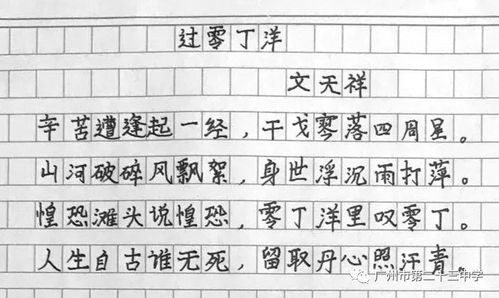 过零丁洋
文天祥
辛苦遭逢起一经，干戈寥落四周星。
山河破碎风飘絮，身世浮沉雨打萍。
惶恐滩头说惶恐，零丁洋里叹零丁。
人生自古谁无死，留取丹心照汗青。
广州市第二十三中学